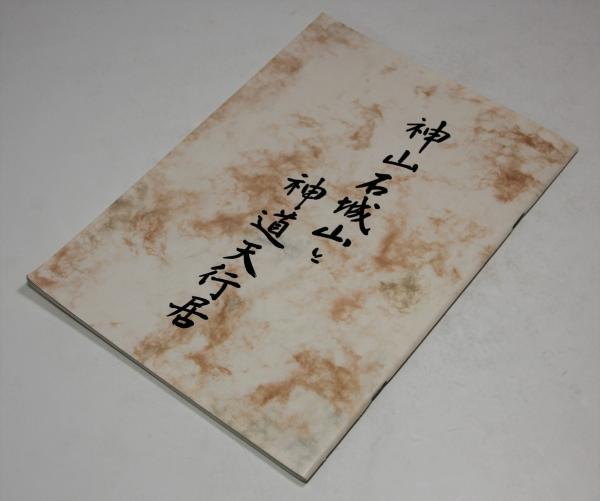 神山石城山と
神道天行居